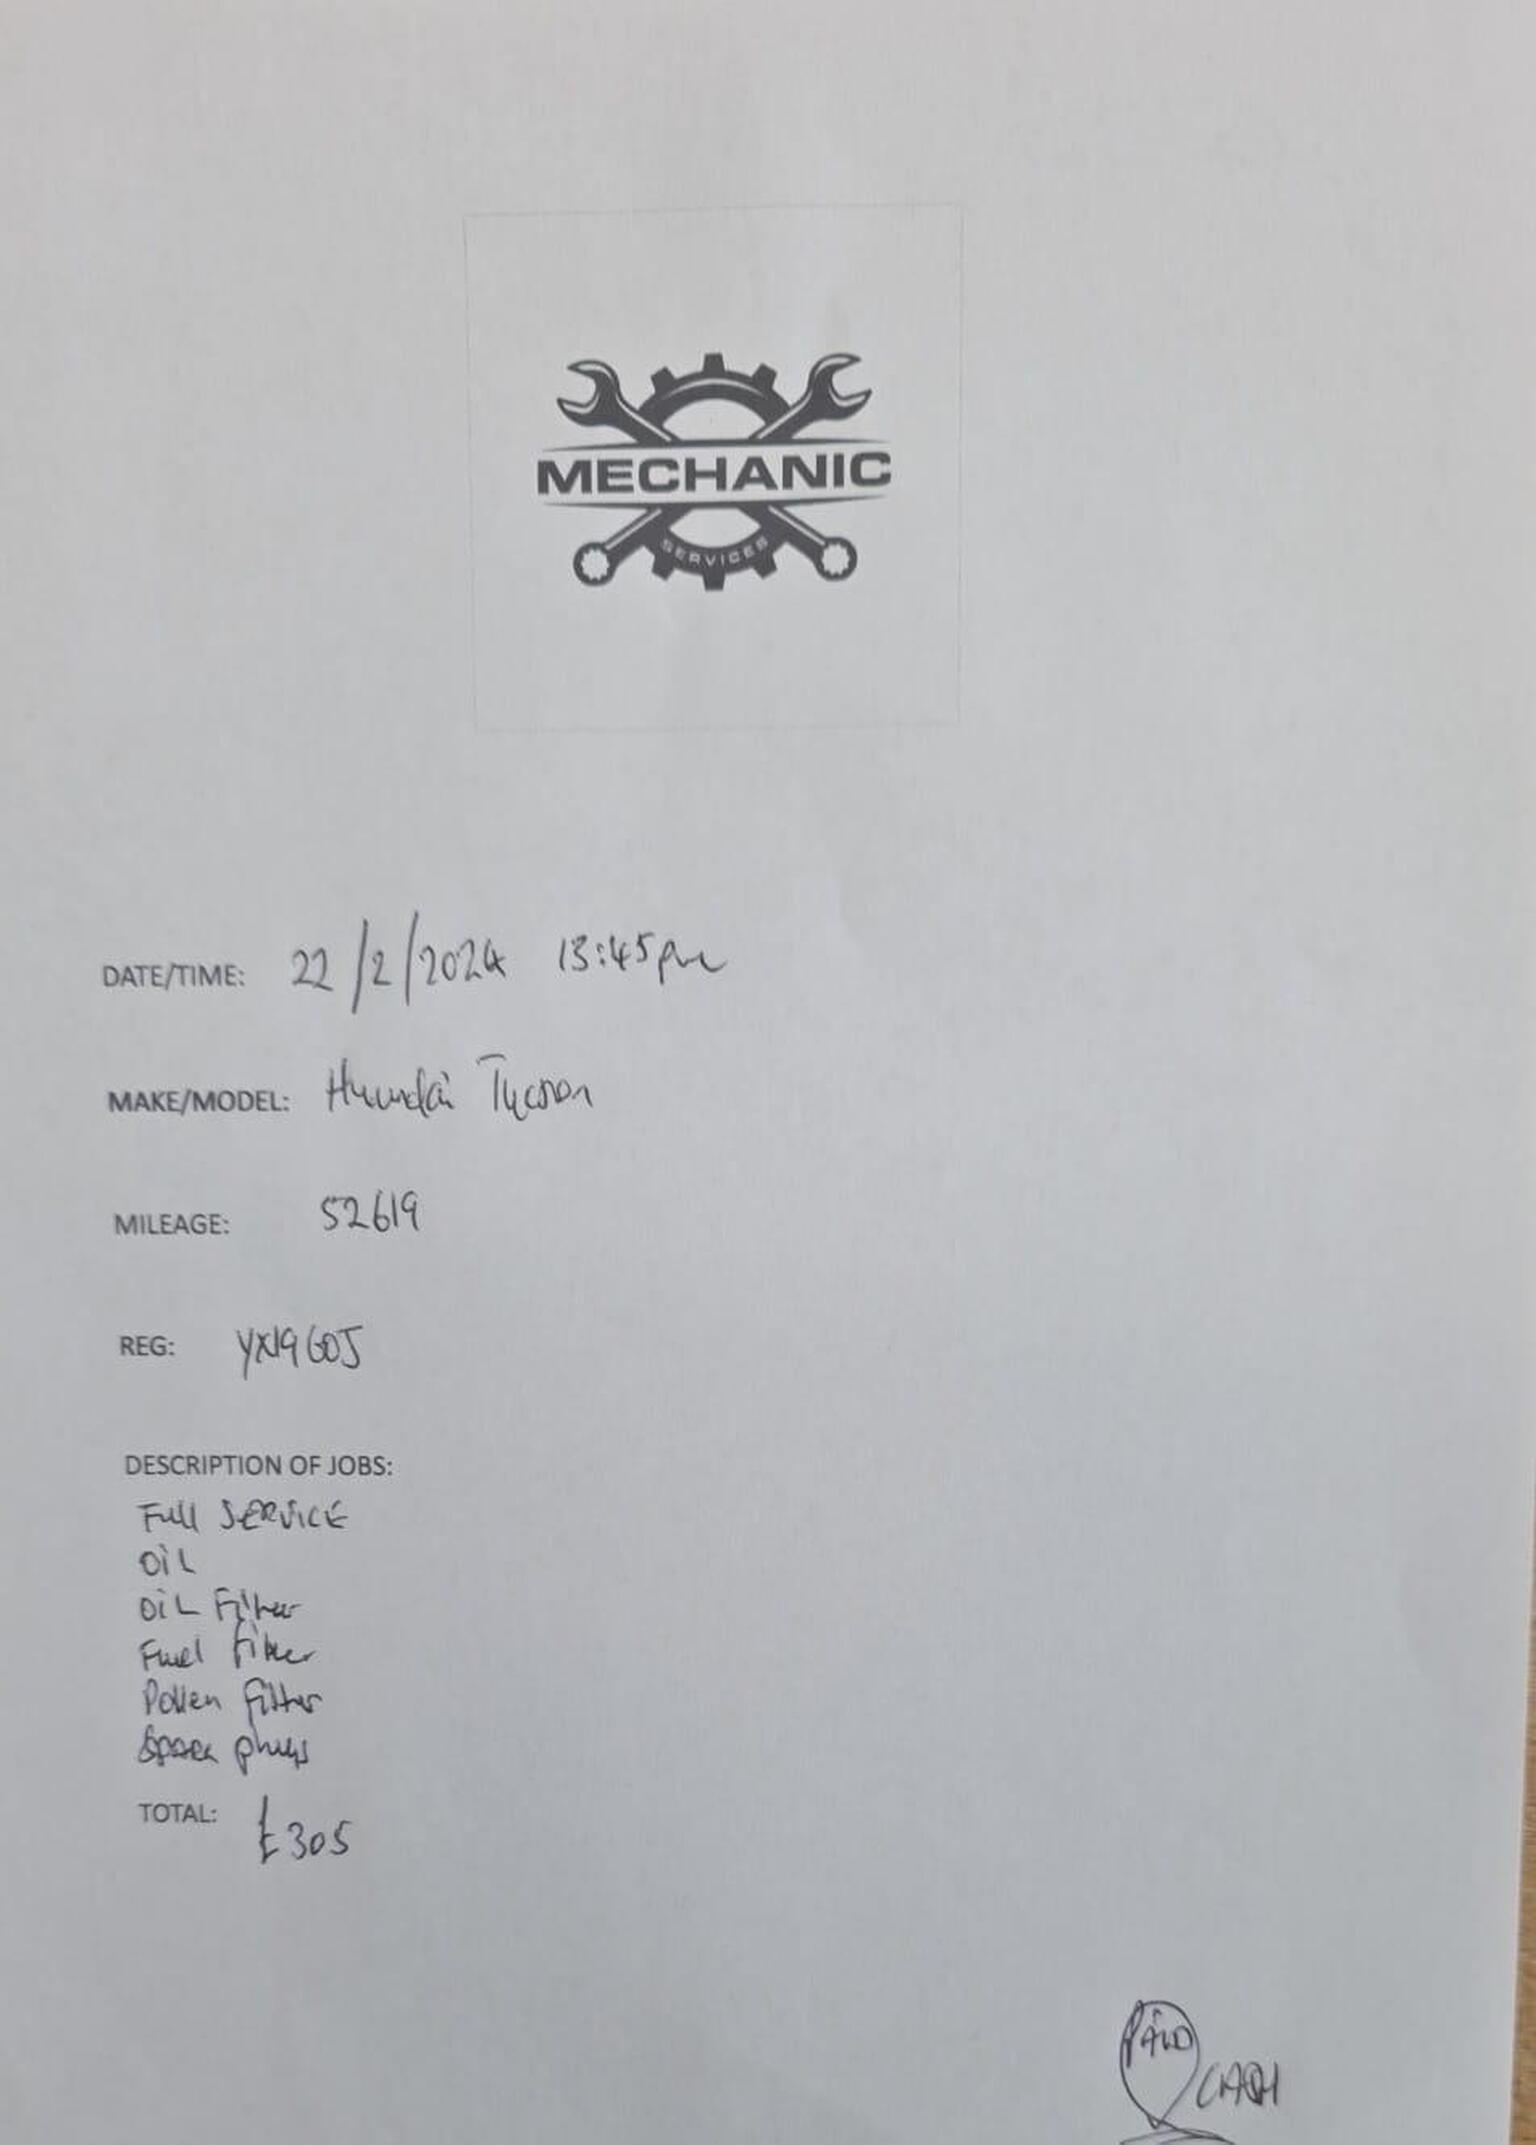 MECHANIC
SERVICES
DATE/TIME: 22/2/2024 13:45pm
MAKE/MODEL: Hyundai Tucson
MILEAGE: 52619
REG:
DESCRIPTION OF JOBS:
Full SERVICE
OiL
OiL Filter
Fuel filter
Pollen filter
Spark plugs
TOTAL: £305
PAID
CASH